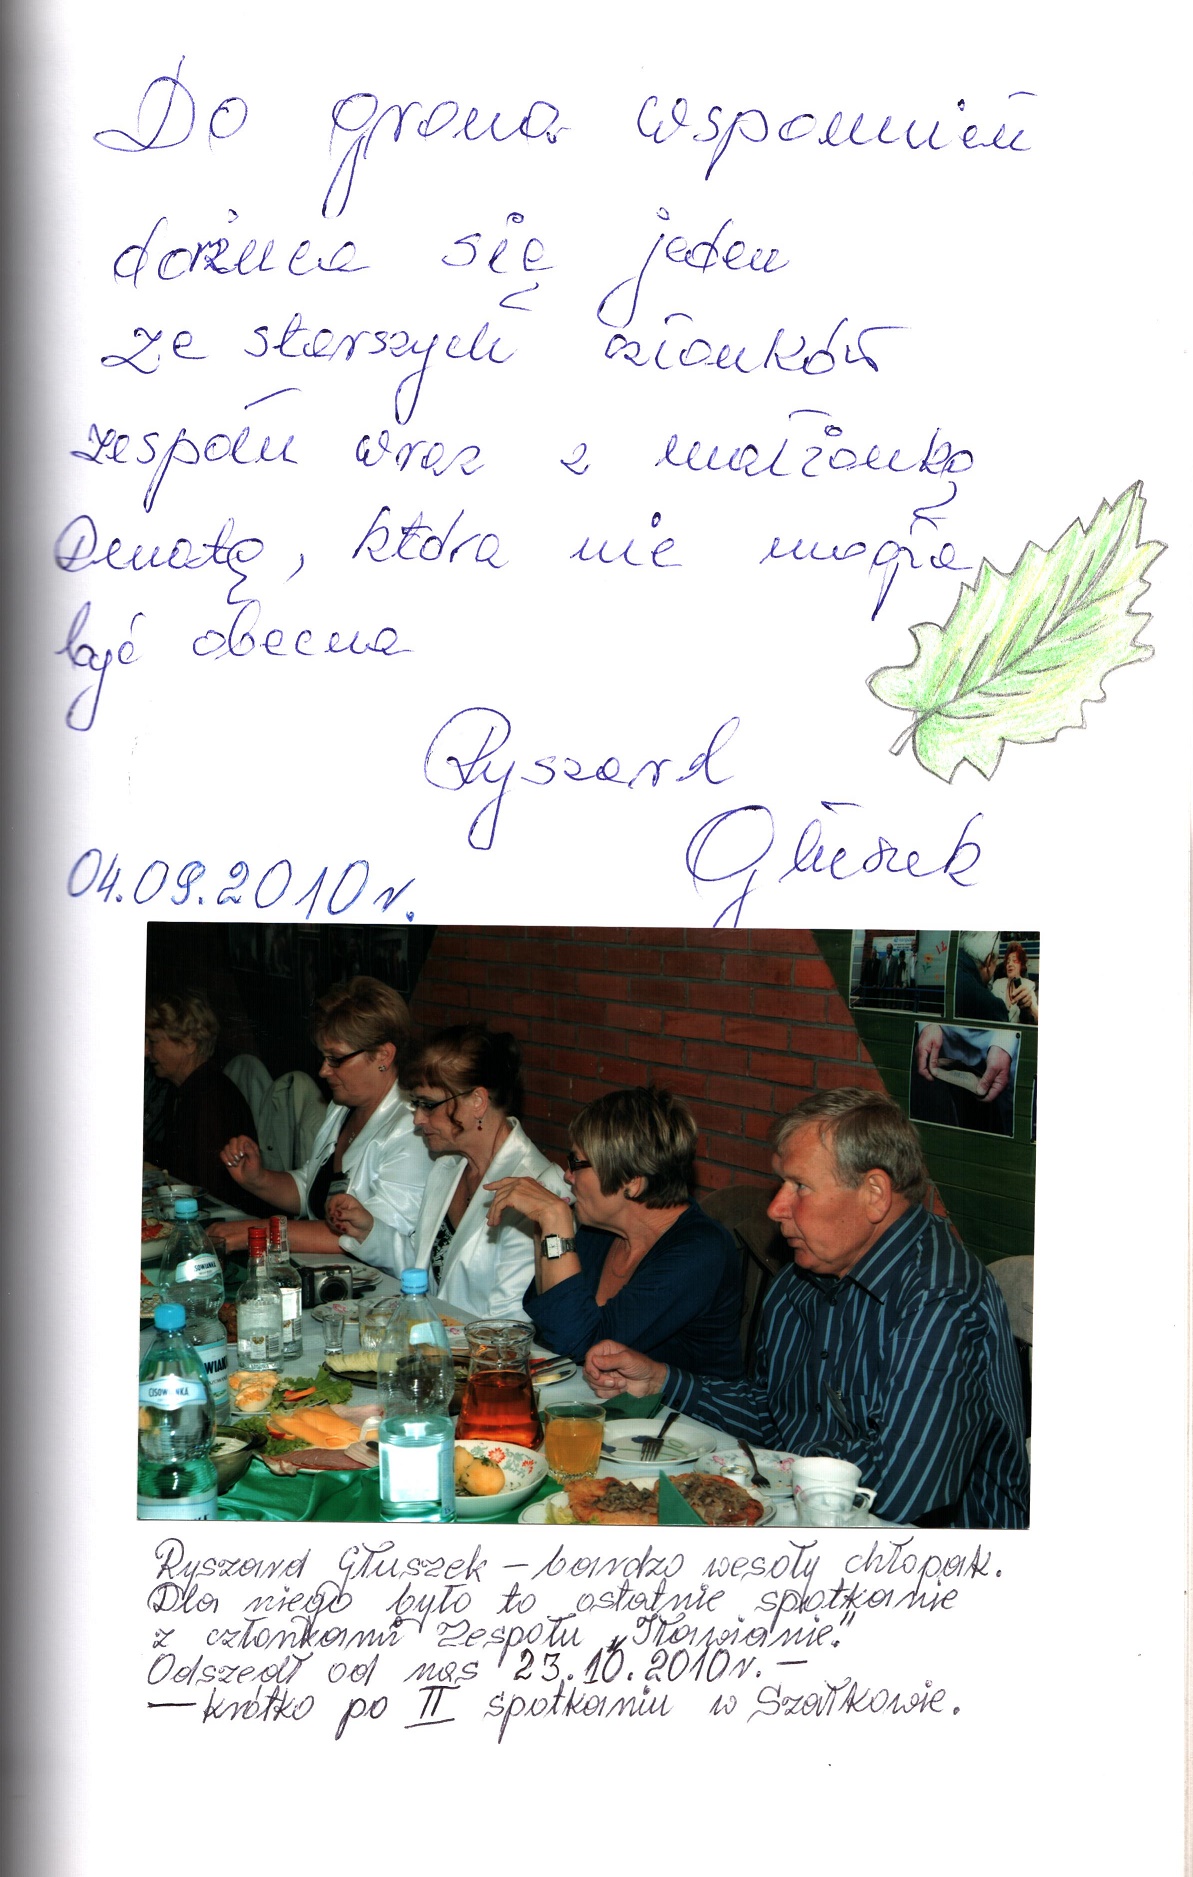 Do grona wspomnień
dorzuca się jeden
ze starszych członków
zespołu wraz z małżonką
Renatą, która nie mogła
być obecna
Ryszard
Głuszek
04.09.2010r.
CISOWIANKA
Ryszard Głuszek – bardzo wesoły chłopak.
Dla niego było to ostatnie spotkanie
z członkami Zespołu „Iławianie."
Odszedł od nas 23.10.2010r. –
– krótko po II spotkaniu w Szałkowie.